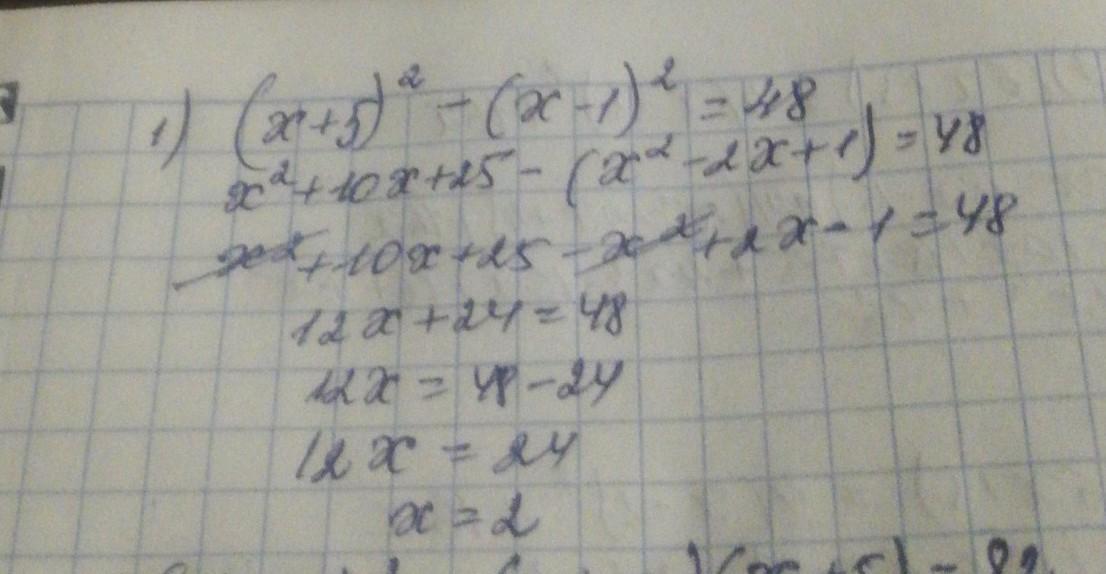 1) (x+5)² - (x-1)² = 48
x²+10x+25 - (x²-2x+1) = 48
x²+10x+25-x²+2x-1=48
12x+24=48
12x = 48-24
12x = 24
x = 2
(x+5) =